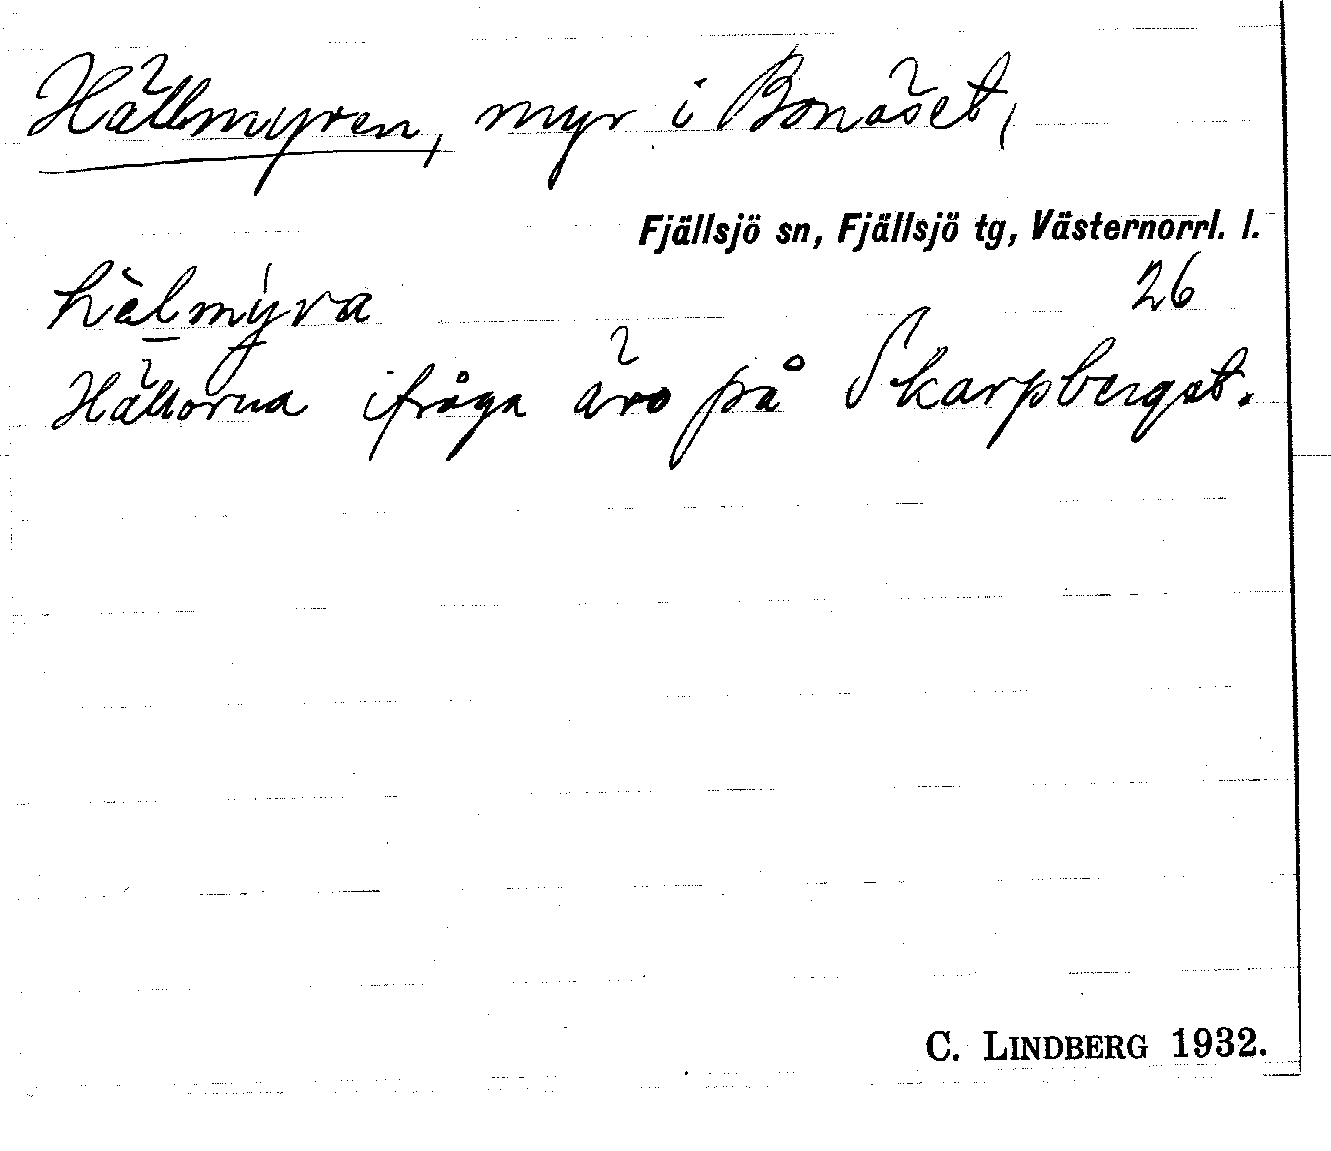 Hällmyren, myr i Bonäset,
Fjällsjö sn, Fjällsjö tg, Västernorrl. l.
hàlmýra 26
Hällorna ifråga äro på Skarpberget.
C. LINDBERG 1932.